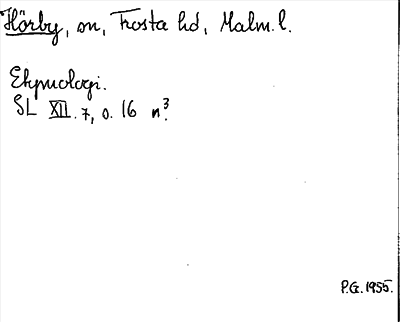 Hörby, sn, Frosta hd, Malm. l.
Etymologi.
SL XII. 7, o. 16 n³.
P.G. 1955.